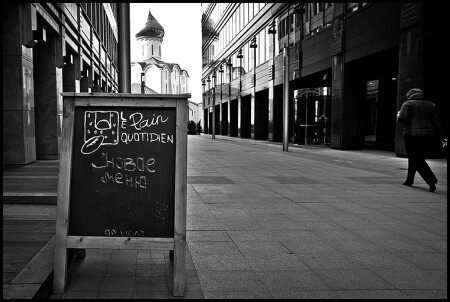 le Pain
QUOTIDIEN
новое
меню